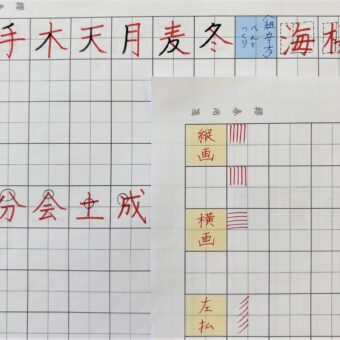 手木天月麦冬
(組立て方)
へんと
つくり
海
分会土成
縦画
横画
左払